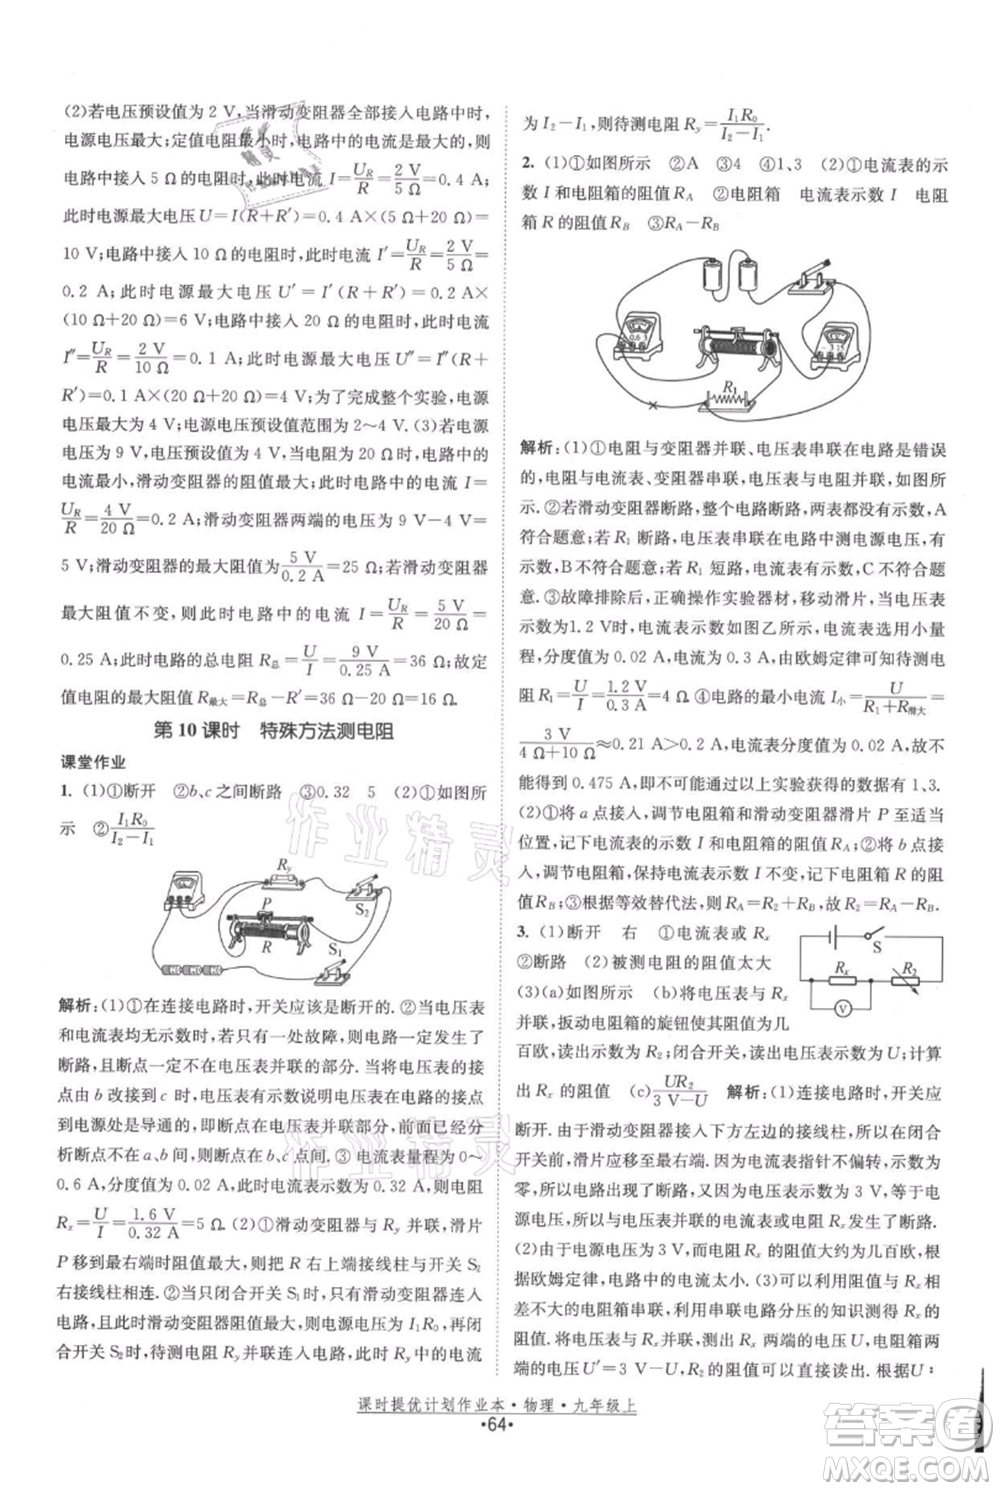 (2)若电压预设值为 2 V,当滑动变阻器全部接入电路中时,
电源电压最大;定值电阻最小时,电路中的电流最大,电源电压最大.电
路中接入 5 Ω 电阻时,此时电流 I=U_R/R=2 V/5 Ω=0.4 A;此
时电源最大电压 U=I(R+R′)=0.4 A×(5 Ω+20 Ω)=10
V;电路中接入 10 Ω 电阻时,此时电流 I′=U_R/R=2 V/10 Ω=
0.2 A;此时电源最大电压 U′=I′(R+R′)=0.2 A×
(10 Ω+20 Ω)=6 V;电路中接入 20 Ω 电阻时,此时电流
I″=U_R/R=2 V/10 Ω=0.1 A;此时电源最大电压 U″=I″(R+
R′)=0.1 A×(20 Ω+20 Ω)=4 V;为了完成整个实验,电
源电压应为 4 V,电压预设值范围为 2～4 V. (3)若电源
电压为 9 V,电压预设值为 4 V,滑动变阻器的
最大阻值不变,则此时电路中的电流 I=
U_R/R=4 V/20 Ω=0.2 A;滑动变阻器两端的电压为 9 V－4 V=
5 V;滑动变阻器的阻值为 5 V/0.2 A=25 Ω;若滑动变阻器
最大阻值不变,则此时电路中的电流 I=U_R/R=
0.25 A;此时电路的总电阻 R总=U/I=9 V/0.25 A=36 Ω;故定
值电阻的最大阻值 R最大=R总－R′=36 Ω－20 Ω=16 Ω.
第 10 课时 特殊方法测电阻
课堂作业
1. (1)①断开 ②b、c 之间断路 ③0.32 5 (2)①如图所
示 ②I₁R₀/(I₂－I₁)
R_y
S₂
P
R
S₁
解析:(1)①在连接电路时,开关应该是断开的. ②当电压表
和电流表均无示数时,说明电路中一定有一处故障,且一定发生了
断路,断点一定不在电压表并联部分;当将电压表的接
点由 b 改接到 c 时,电压表有示数且示数接近电源电压,说明
电源是导通的,即断点与电压表并联部分,前面已经
分析断点不在 a、b 间,所以断点在 b、c 之间. ③电流表量程为 0～
0.6 A,分度值为 0.02 A,此时电流表示数为 0.32 A,则电阻
R_x=U/I=1.6 V/0.32 A=5 Ω. (2)①滑动变阻器与 R_y 并联,滑片
P 移动到最右端时阻值最大,则将 R 右上端接线柱和开关 S₂
右接线柱相连. ②当只闭合 S₁ 时,只有滑动变阻器连入电
路中,且阻值为最大值 R₀,此时电流表示数为 I₁;再闭
合 S₂ 时,待测电阻 R_y 并联连入电路中,通过待测电阻的电流
为 I₂－I₁,则待测电阻 R_y=I₁R₀/(I₂－I₁).
2. (1)①如图所示 ②A ③4 ④1、3 (2)①电流表的示
数 I 和电阻箱的阻值 R_A ②电阻箱 电流表示数 I 电阻
箱 R 的阻值 R_B ③R_A－R_B
R₁
解析:(1)①电阻与变阻器并联、电压表串联在电路是错误
的,电阻与电流表、变阻器串联,电压表与电阻并联,如图所
示. ②若滑动变阻器断路,整个电路断路,两表都没有示数,A
符合题意;若 R₁ 断路,电压表串联在电路中测电源电压,有
示数,B不符合题意;若 R₁ 短路,电流表有示数,C不符合题
意. ③故障排除后,正确操作实验器材,移动滑片,当电压表
示数为1.2 V时,电流表示数如图乙所示,电流表选用小量
程,分度值为 0.02 A,电流为 0.3 A,由欧姆定律可得待测电
阻 R₁=U/I=1.2 V/0.3 A=4 Ω. ④电路的最小电流 I小=U/(R₁+R滑大)=
3 V/(4 Ω+10 Ω)≈0.21 A>0.2 A,电流表分度值为 0.02 A,故不
能得到 0.475 A,所以以上实验获得的数据可能有 1、3.
(2)①将 a 点接入,调节电阻箱和滑动变阻器滑片 P 至适当
位置,记下电流表示数 I 和电阻箱的阻值 R_A;②将 b 点接
入,调节电阻箱,保持电流表示数 I 不变,记下电阻箱 R 的阻
值 R_B;③根据等效替代法,则 R_A=R₀+R_B,R₀=R_A－R_B.
3. (1)断开 右 ①电流表或 R_x
②断路 (2)被测电阻的阻值太大
(3)(a)如图所示 (b)将电压表与 R_x
并联,扳动电阻箱的旋钮使其电阻为几
百欧,读出示数 R₂;闭合开关,读出电压表示数为 U;计算
出 R_x 的阻值 (c)UR₂/(3 V－U) 解析:(1)连接电路时,开关应
S
R_x
R₂
V
断开. 由于滑动变阻器接入下方左边的接线柱,所以在闭合
开关前,滑片应移至最右端. ①电流表指针不偏转,示数为
零,说明电路出现了断路,又电压表示数为 3 V,等于电
源电压,所以与电压表并联的电流表或 R_x 发生了断路.
(2)由于电源电压为 3 V,如果电阻 R_x 的阻值大约几百欧,
根据欧姆定律,电路中的电流太小. (3)把 R_x 和与它阻值相
差不大的电阻箱串联,利用串联电路分压的知识测出 R_x 的
阻值. 将电压表与 R_x 并联,测出 R_x 两端的电压 U,电阻箱两
端的电压 U′=3 V－U,R₂ 的阻值可以直接读出. 故有U∶
课时提优计划作业本·物理·九年级上
·64·
作业精灵
作业精灵
答案圈
MXQE.COM